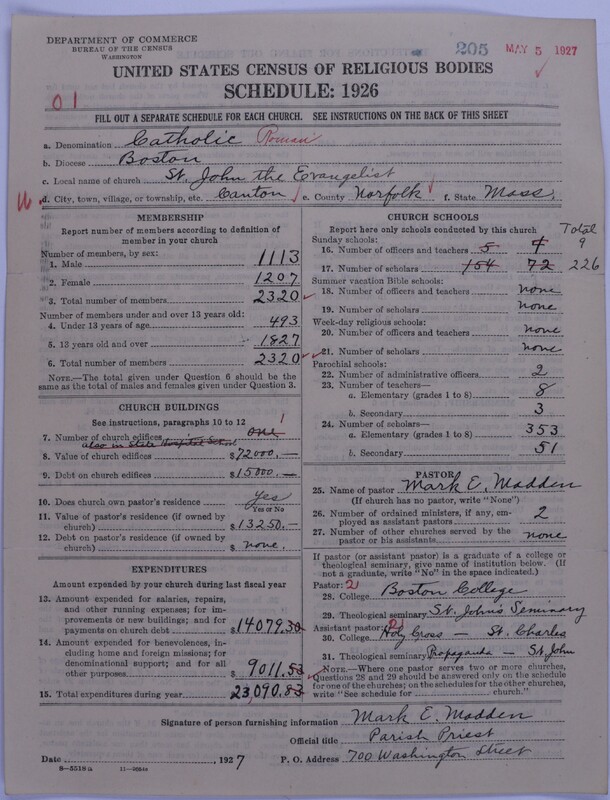 DEPARTMENT OF COMMERCE
BUREAU OF THE CENSUS
WASHINGTON
205 MAY 5 1927
UNITED STATES CENSUS OF RELIGIOUS BODIES
SCHEDULE: 1926
01
FILL OUT A SEPARATE SCHEDULE FOR EACH CHURCH. SEE INSTRUCTIONS ON THE BACK OF THIS SHEET
a. Denomination Catholic Roman
b. Diocese Boston
c. Local name of church St. John the Evangelist
d. City, town, village, or township, etc. Canton e. County Norfolk f. State Mass.
MEMBERSHIP
Report number of members according to definition of
member in your church
Number of members, by sex:
1. Male 1113
2. Female 1207
3. Total number of members 2320
Number of members under and over 13 years old:
4. Under 13 years of age 493
5. 13 years old and over 1827
6. Total number of members 2320
NOTE.—The total given under Question 6 should be
same as the total of males and females given under Question 3.
CHURCH BUILDINGS
See instructions, paragraphs 10 to 12
7. Number of church edifices one 1
also in State Hospital School
8. Value of church edifices $72000.—
9. Debt on church edifices $15000.—
10. Does church own pastor's residence Yes
Yes or No
11. Value of pastor's residence (if owned by
church) $13250.—
12. Debt on pastor's residence (if owned by
church) $ none.
EXPENDITURES
Amount expended by your church during last fiscal year
13. Amount expended for salaries, repairs,
and other running expenses; for im-
provements or new buildings; and for
payments on church debt $14079.30
14. Amount expended for benevolences, in-
cluding home and foreign missions; for
denominational support; and for all
other purposes $9011.53
15. Total expenditures during year 23,090.83
CHURCH SCHOOLS
Report here only schools conducted by this church
Total
Sunday schools:
16. Number of officers and teachers 5 4 9
17. Number of scholars 154 72 226
Summer vacation Bible schools:
18. Number of officers and teachers none
19. Number of scholars none
Week-day religious schools:
20. Number of officers and teachers none
21. Number of scholars none
Parochial schools:
22. Number of administrative officers 2
23. Number of teachers—
a. Elementary (grades 1 to 8) 8
b. Secondary 3
24. Number of scholars—
a. Elementary (grades 1 to 8) 353
b. Secondary 51
PASTOR
25. Name of pastor Mark E. Madden
(If church has no pastor, write "None")
26. Number of ordained ministers, if any, em-
ployed as assistant pastors 2
27. Number of other churches served by the
pastor or his assistants none
If pastor (or assistant pastor) is a graduate of a college or
theological seminary, give name of institution below. (If
not a graduate, write "No" in the space indicated.)
Pastor: 2
28. College Boston College
29. Theological seminary St. John's Seminary
Assistant pastor: 2
30. College Holy Cross — St. Charles
31. Theological seminary Propaganda — St. John
NOTE.—Where one pastor serves two or more churches,
Questions 28 and 29 should be answered only on the schedule
for one of the churches; on the schedules for the other churches,
write "See schedule for church."
Signature of person furnishing information Mark E. Madden
Official title Parish Priest
Date 1927 P. O. Address 700 Washington Street
8—5519a